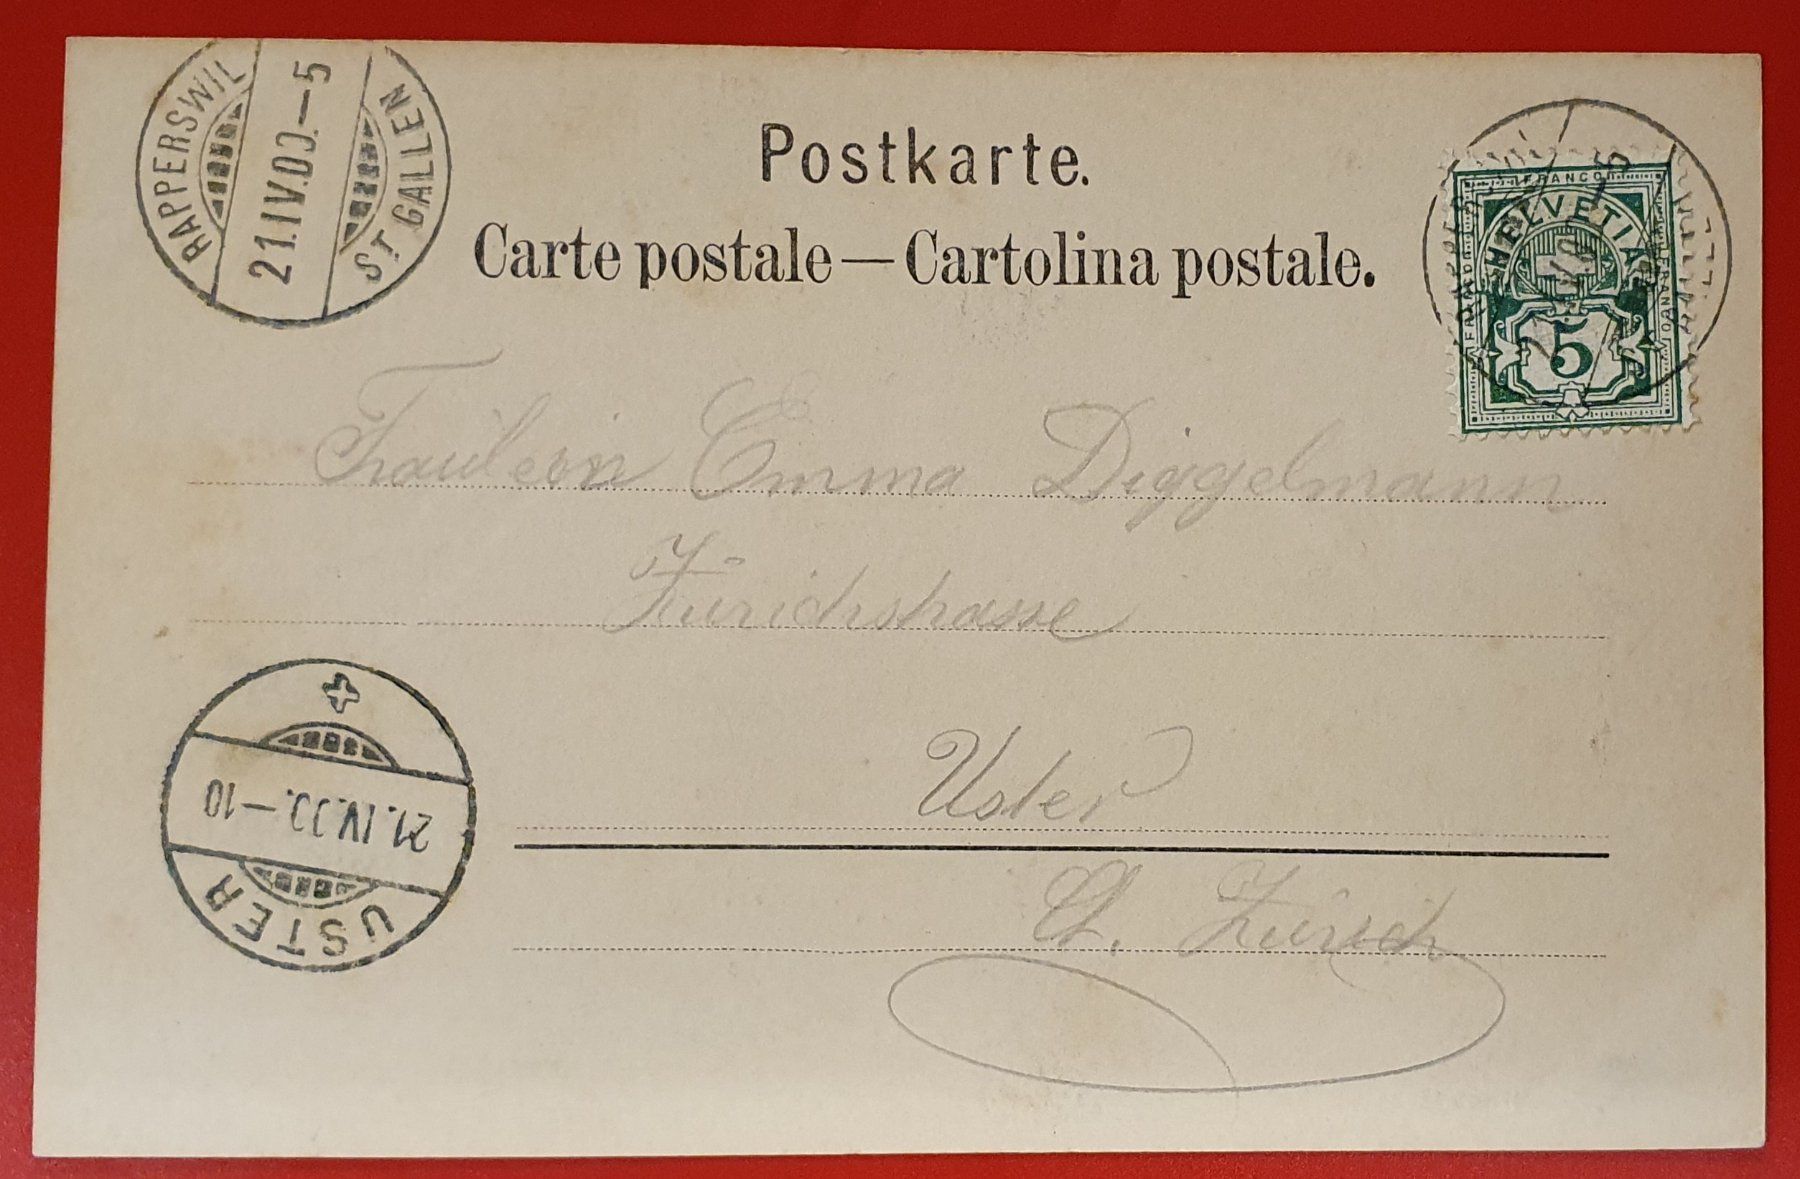 RAPPERSWIL
21.IV.00.–5
ST GALLEN
Postkarte.
Carte postale — Cartolina postale.
FRANCO
HELVETIA
FRANCO
FRANCO
5
Fräulein Emma Diggelmann
Zürichstrasse
Uster
Ct. Zürich
21.IV.00.–10
USTER